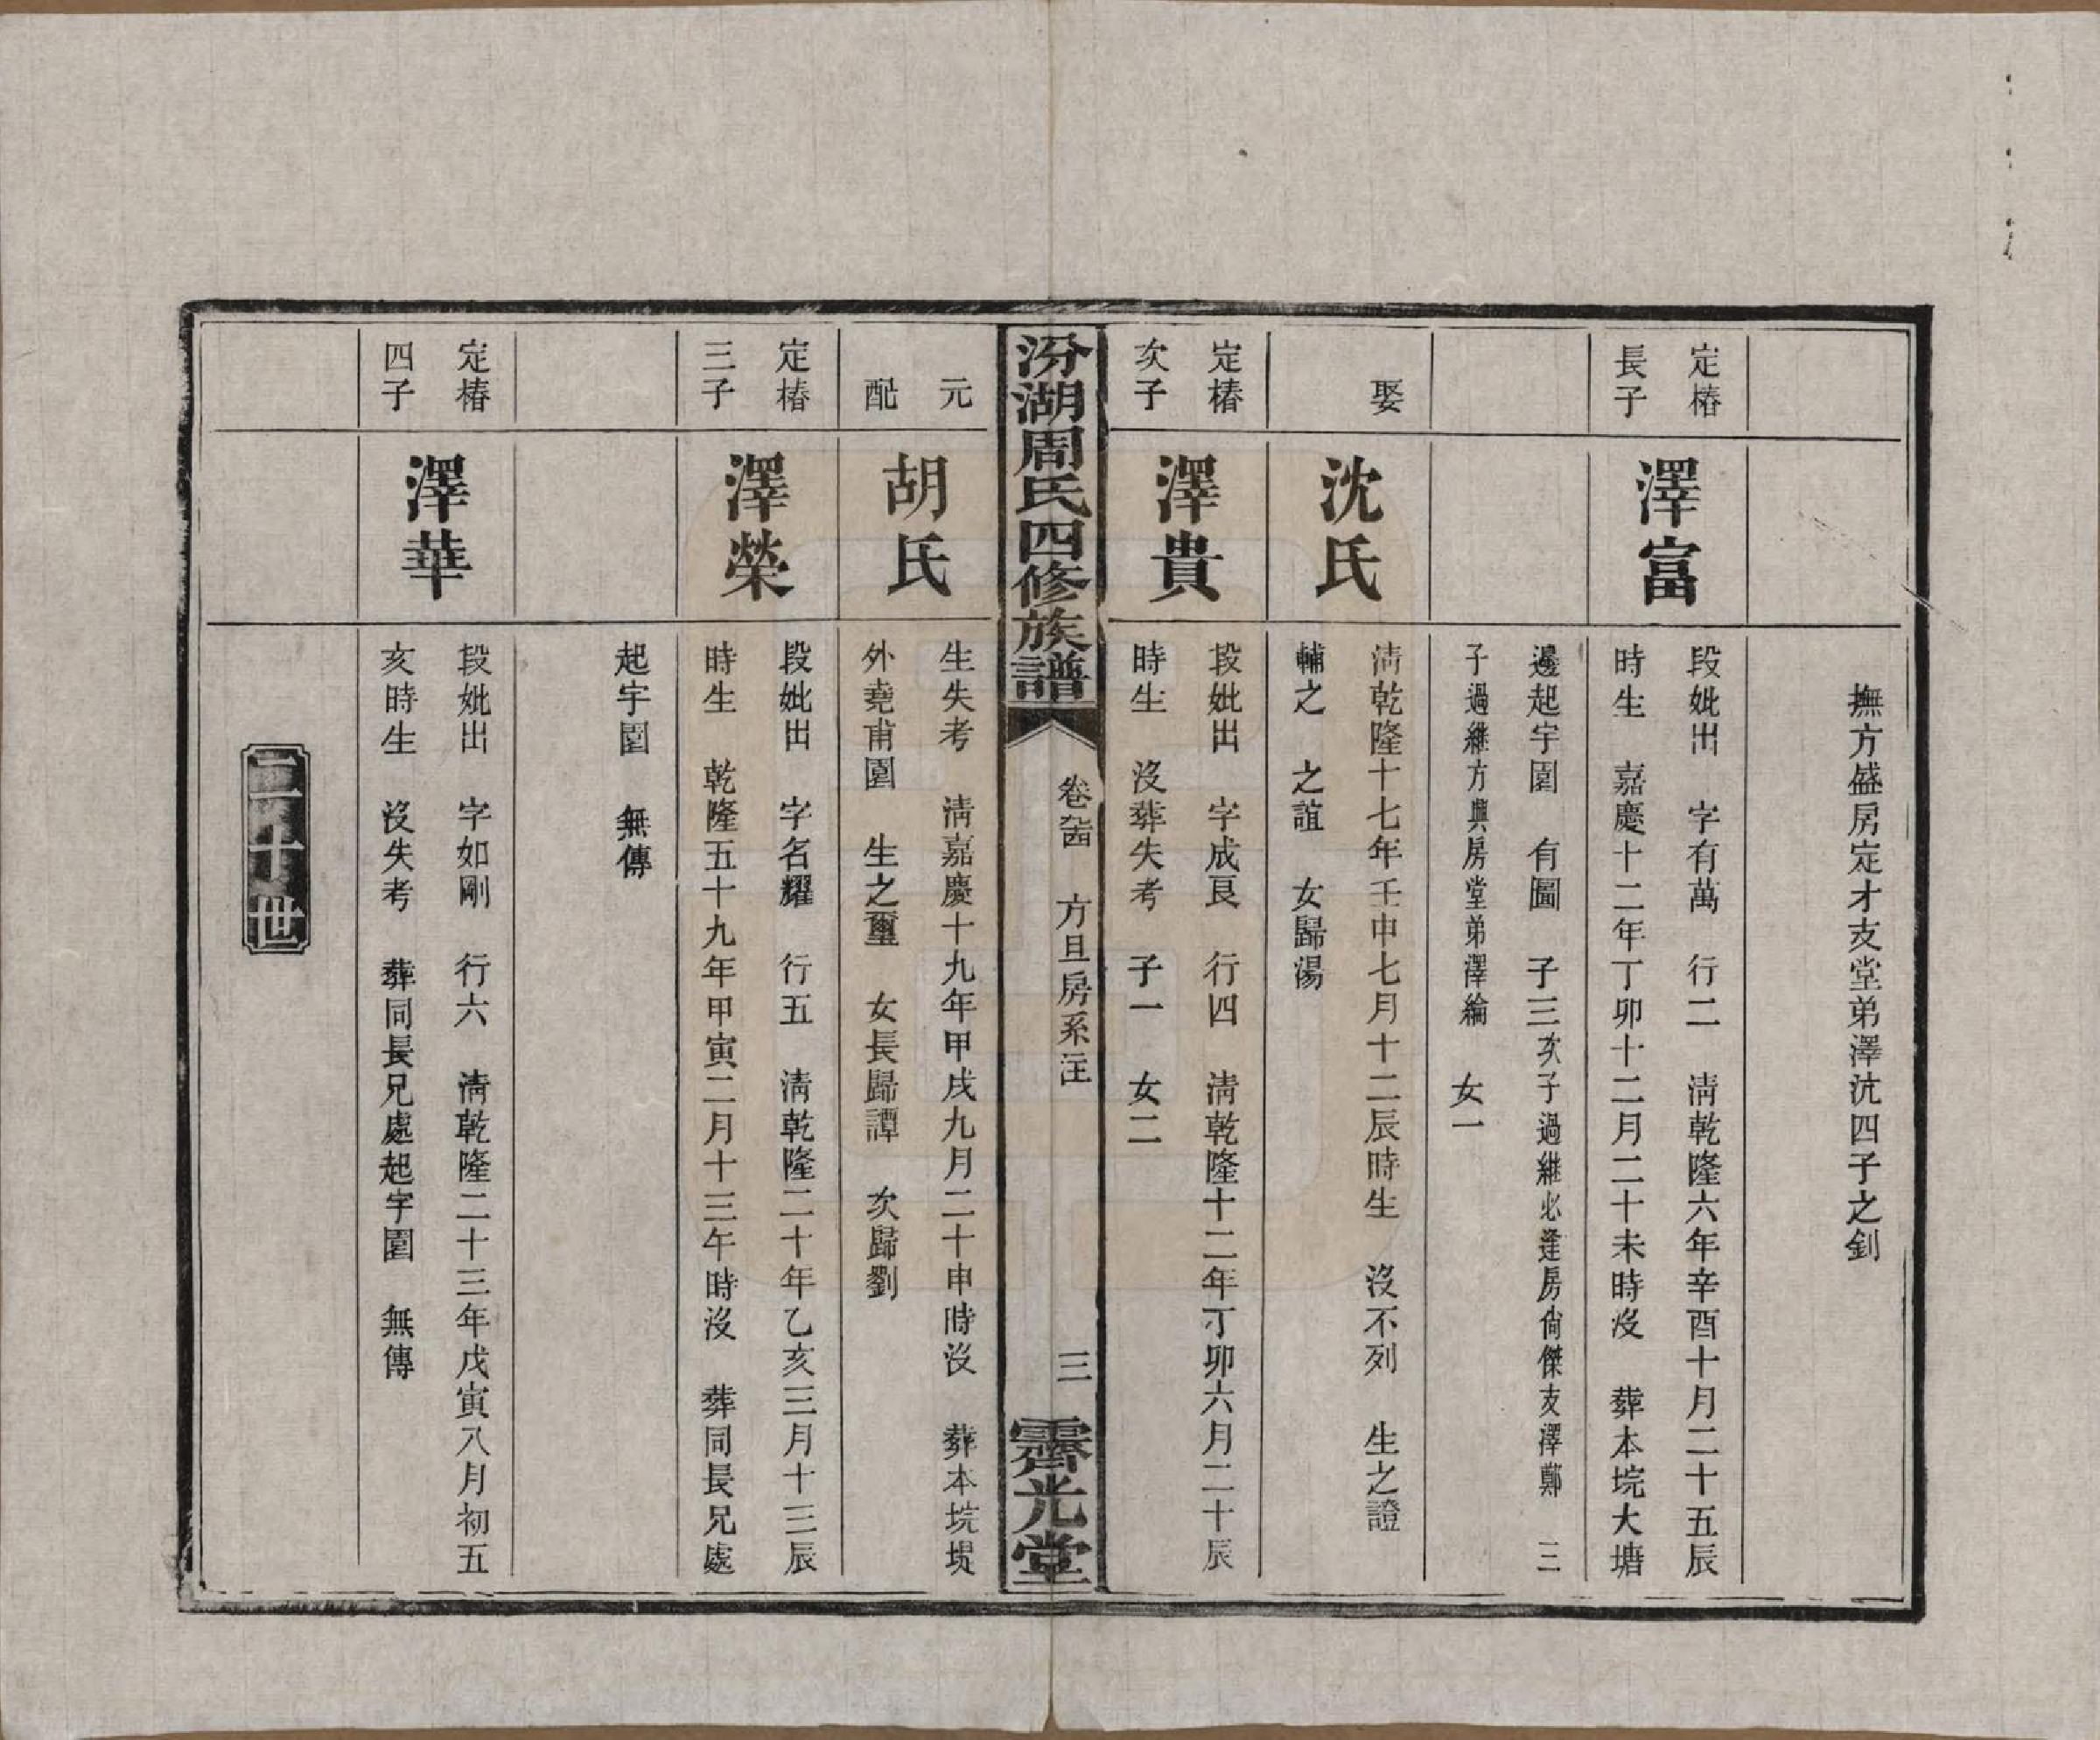 撫方盛房定才支堂弟澤沆四子之釗
定椿
長子
澤富
段妣出　字有萬　行二　清乾隆六年辛酉十月二十五辰
時生　嘉慶十二年丁卯十二月二十未時沒　葬本垸大塘
邊起宇園　有圖　子三次子過繼必逢房尙傑支澤鄰　三
子過繼方興房堂弟澤綸　女一
娶
沈氏
淸乾隆十七年壬申七月十二辰時生　沒不列　生之證
輔之　之誼　女歸湯
定椿
次子
澤貴
段妣出　字成良　行四　淸乾隆十二年丁卯六月二十辰
時生　沒葬失考　子一　女二
汾湖周氏四修族譜
卷　方旦房系注
三
霽光堂
元
配
胡氏
生失考　淸嘉慶十九年甲戌九月二十申時沒　葬本垸堤
外堯甫園　生之璽　女長歸譚　次歸劉
定椿
三子
澤榮
段妣出　字名耀　行五　淸乾隆二十年乙亥三月十三辰
時生　乾隆五十九年甲寅二月十三午時沒　葬同長兄處
起宇園　無傳
定椿
四子
澤華
段妣出　字如剛　行六　淸乾隆二十三年戊寅八月初五
亥時生　沒失考　葬同長兄處起宇園　無傳
二十世